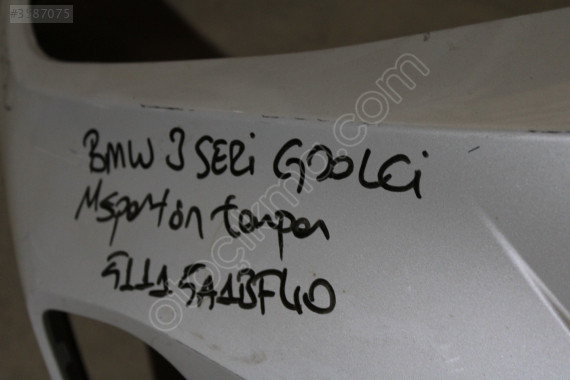 #3187075
BMW 3 SERİ G20 LCİ
Msport ön tampon
51115A1BF40
otocimri.com